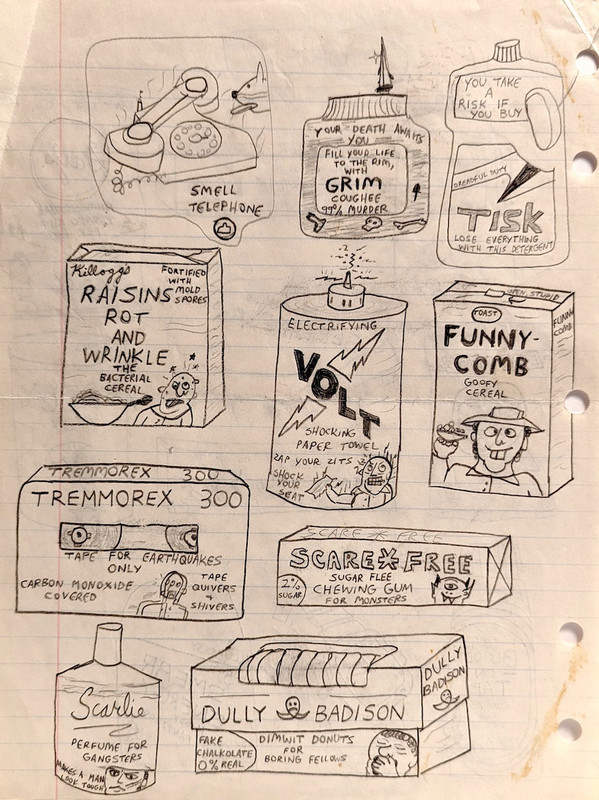 SMELL
TELEPHONE
YOUR DEATH AWAITS
YOU
FILL YOUR LIFE
TO THE RIM,
WITH
GRIM
COUGHEE
99% MURDER
YOU TAKE
A
RISK IF
YOU BUY
DREADFUL DUTY
TISK
LOSE EVERYTHING
WITH THIS DETERGENT
Killogg's
FORTIFIED
WITH
MOLD
SPORES
RAISINS
ROT
AND
WRINKLE
THE
BACTERIAL
CEREAL
ELECTRIFYING
VOLT
SHOCKING
PAPER TOWEL
ZAP YOUR ZITS
SHOCK
YOUR
SEAT
OPEN STUPID
FUNNY
COMB
ROAST
FUNNY-
COMB
GOOFY
CEREAL
TREMMOREX 300
TREMMOREX 300
TAPE FOR EARTHQUAKES
ONLY
CARBON MONOXIDE
COVERED
TAPE
QUIVERS
+
SHIVERS
SCARE * FREE
SCARE * FREE
2%
SUGAR
SUGAR FLEE
CHEWING GUM
FOR MONSTERS
Scarlie
PERFUME FOR
GANGSTERS
MAKES A MAN
LOOK TOUGH
DULLY
BADISON
DULLY BADISON
FAKE
CHALKOLATE
0% REAL
DIMWIT DONUTS
FOR
BORING FELLOWS